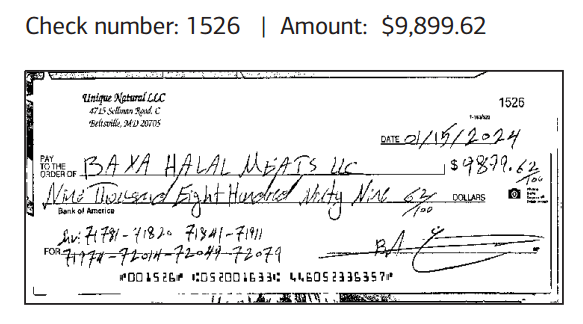 Check number: 1526 | Amount: $9,899.62
Unique Natural LLC
4715 Sellman Road, C
Beltsville, MD 20705
1526
DATE 01/15/2024
PAY TO THE ORDER OF BAYA HALAL MEATS LLC $9899.62/100
Nine Thousand Eight Hundred Ninty Nine 62/100 DOLLARS
Bank of America
Inv: 71781-71820 71841-71911
FOR 71974-72014-72049-72079
⑈001526⑈ ⑆052001633⑆ 446052336357⑈